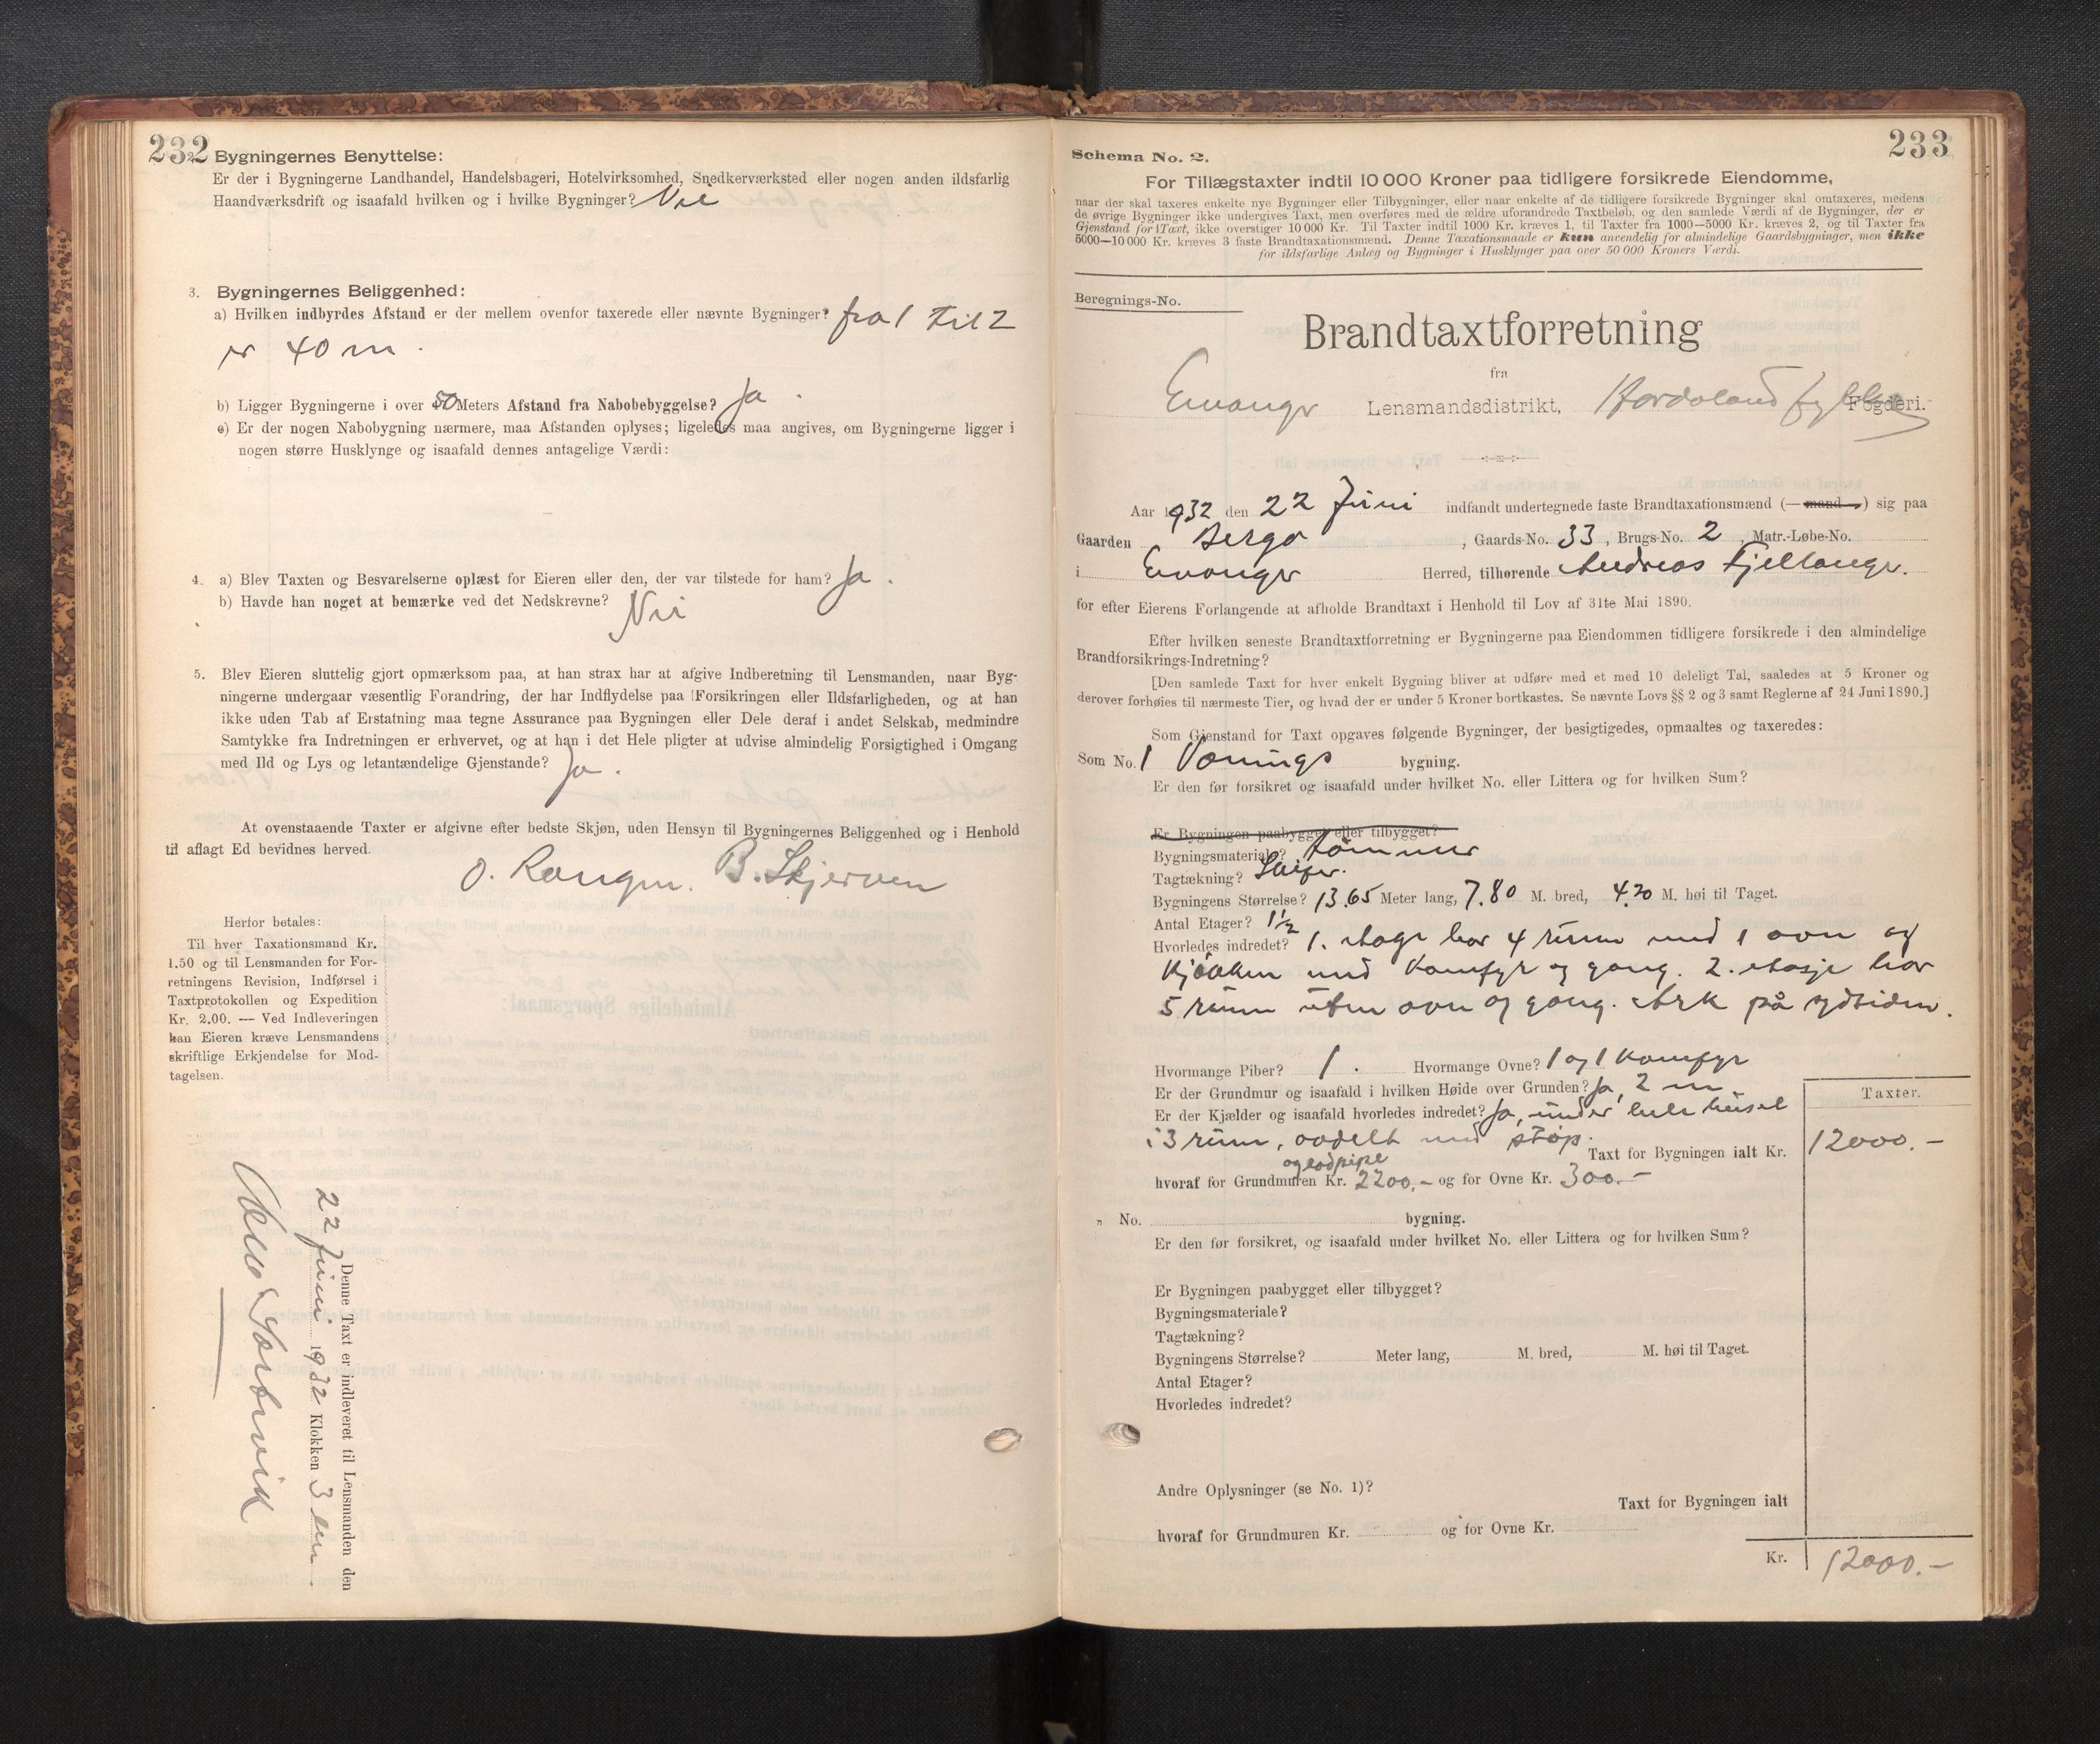 232
Bygningernes Benyttelse:
Er der i Bygningerne Landhandel, Handelsbageri, Hotelvirksomhed, Snedkerværksted eller nogen anden ildsfarlig
Haandværksdrift og isaafald hvilken og i hvilke Bygninger? Nei
3. Bygningernes Beliggenhed:
a) Hvilken indbyrdes Afstand er der mellem ovenfor taxerede eller nævnte Bygninger? fra 1 til 2
er 40 m.
b) Ligger Bygningerne i over 50 Meters Afstand fra Nabobebyggelse? Ja.
c) Er der nogen Nabobygning nærmere, maa Afstanden oplyses; ligeledes maa angives, om Bygningerne ligger i
nogen større Husklynge og isaafald dennes antagelige Værdi:
4. a) Blev Taxten og Besvarelserne oplæst for Eieren eller den, der var tilstede for ham? Ja.
b) Havde han noget at bemærke ved det Nedskrevne? Nei
5. Blev Eieren sluttelig gjort opmærksom paa, at han strax har at afgive Indberetning til Lensmanden, naar Byg-
ningerne undergaar væsentlig Forandring, der har Indflydelse paa Forsikringen eller Ildsfarligheden, og at han
ikke uden Tab af Erstatning maa tegne Assurance paa Bygningen eller Dele deraf i andet Selskab, medmindre
Samtykke fra Indretningen er erhvervet, og at han i det Hele pligter at udvise almindelig Forsigtighed i Omgang
med Ild og Lys og letantændelige Gjenstande? Ja.
At ovenstaaende Taxter er afgivne efter bedste Skjøn, uden Hensyn til Bygningernes Beliggenhed og i Henhold
til aflagt Ed bevidnes herved.
O. Rongen. B. Skjerven
Herfor betales:
Til hver Taxationsmand Kr.
1.50 og til Lensmanden for For-
retningens Revision, Indførsel i
Taxtprotokollen og Expedition
Kr. 2.00. — Ved Indleveringen
kan Eieren kræve Lensmandens
skriftlige Erkjendelse for Mod-
tagelsen.
Denne Taxt er indleveret til Lensmanden den
22 Juni 1932 Klokken 3 em
233
Schema No. 2.
For Tillægstaxter indtil 10 000 Kroner paa tidligere forsikrede Eiendomme,
naar der skal taxeres enkelte nye Bygninger eller Tilbygninger, eller naar enkelte af de tidligere forsikrede Bygninger skal omtaxeres, medens
de øvrige Bygninger ikke undergives Taxt, men overføres med de ældre uforandrede Taxtbeløb, og den samlede Værdi af de Bygninger, der er
Gjenstand for Taxt, ikke overstiger 10 000 Kr. Til Taxter indtil 1000 Kr. kræves 1, til Taxter fra 1000—5000 Kr. kræves 2, og til Taxter fra
5000—10 000 Kr. kræves 3 faste Brandtaxationsmænd. Denne Taxationsmaade er kun anvendelig for almindelige Gaardsbygninger, men ikke
for ildsfarlige Anlæg og Bygninger i Husklynger paa over 50 000 Kroners Værdi.
Beregnings-No.
Brandtaxtforretning
fra
Evanger Lensmandsdistrikt, Hordaland fylke Fogderi.
Aar 1932 den 22 Juni indfandt undertegnede faste Brandtaxationsmænd (—mand—) sig paa
Gaarden Berge, Gaards-No. 33, Brugs-No. 2, Matr.-Løbe-No.
i Evanger Herred, tilhørende Andreas Fjellanger.
for efter Eierens Forlangende at afholde Brandtaxt i Henhold til Lov af 31te Mai 1890.
Efter hvilken seneste Brandtaxtforretning er Bygningerne paa Eiendommen tidligere forsikrede i den almindelige
Brandforsikrings-Indretning?
[Den samlede Taxt for hver enkelt Bygning bliver at udføre med et med 10 deleligt Tal, saaledes at 5 Kroner og
derover forhøies til nærmeste Tier, og hvad der er under 5 Kroner bortkastes. Se nævnte Lovs §§ 2 og 3 samt Reglerne af 24 Juni 1890.]
Som Gjenstand for Taxt opgaves følgende Bygninger, der besigtigedes, opmaaltes og taxeredes:
Som No. 1 Vonings bygning.
Er den før forsikret og isaafald under hvilket No. eller Littera og for hvilken Sum?
Er Bygningen paabygget eller tilbygget?
Bygningsmateriale? tømmer
Tagtækning? Skifer.
Bygningens Størrelse? 13.65 Meter lang, 7.80 M. bred, 4.20 M. høi til Taget.
Antal Etager? 1½
Hvorledes indredet? 1. etage har 4 rum med 1 ovn og
kjøkken med komfyr og gang. 2. etasje har
5 rum uten ovn og gang. Ark på sydsiden.
Hvormange Piber? 1. Hvormange Ovne? 1 og 1 komfyr
Er der Grundmur og isaafald i hvilken Høide over Grunden? Ja, 2 m.
Er der Kjælder og isaafald hvorledes indredet? Ja, under hele huset
i 3 rum, avdelt med støp.
Taxter.
Taxt for Bygningen ialt Kr. 12000.-
og lodpipe
hvoraf for Grundmuren Kr. 2200.- og for Ovne Kr. 300.-
„ No. bygning.
Er den før forsikret, og isaafald under hvilket No. eller Littera og for hvilken Sum?
Er Bygningen paabygget eller tilbygget?
Bygningsmateriale?
Tagtækning?
Bygningens Størrelse? Meter lang, M. bred, M. høi til Taget.
Antal Etager?
Hvorledes indredet?
Andre Oplysninger (se No. 1)?
Taxt for Bygningen ialt
hvoraf for Grundmuren Kr. og for Ovne Kr.
Kr. 12000.-